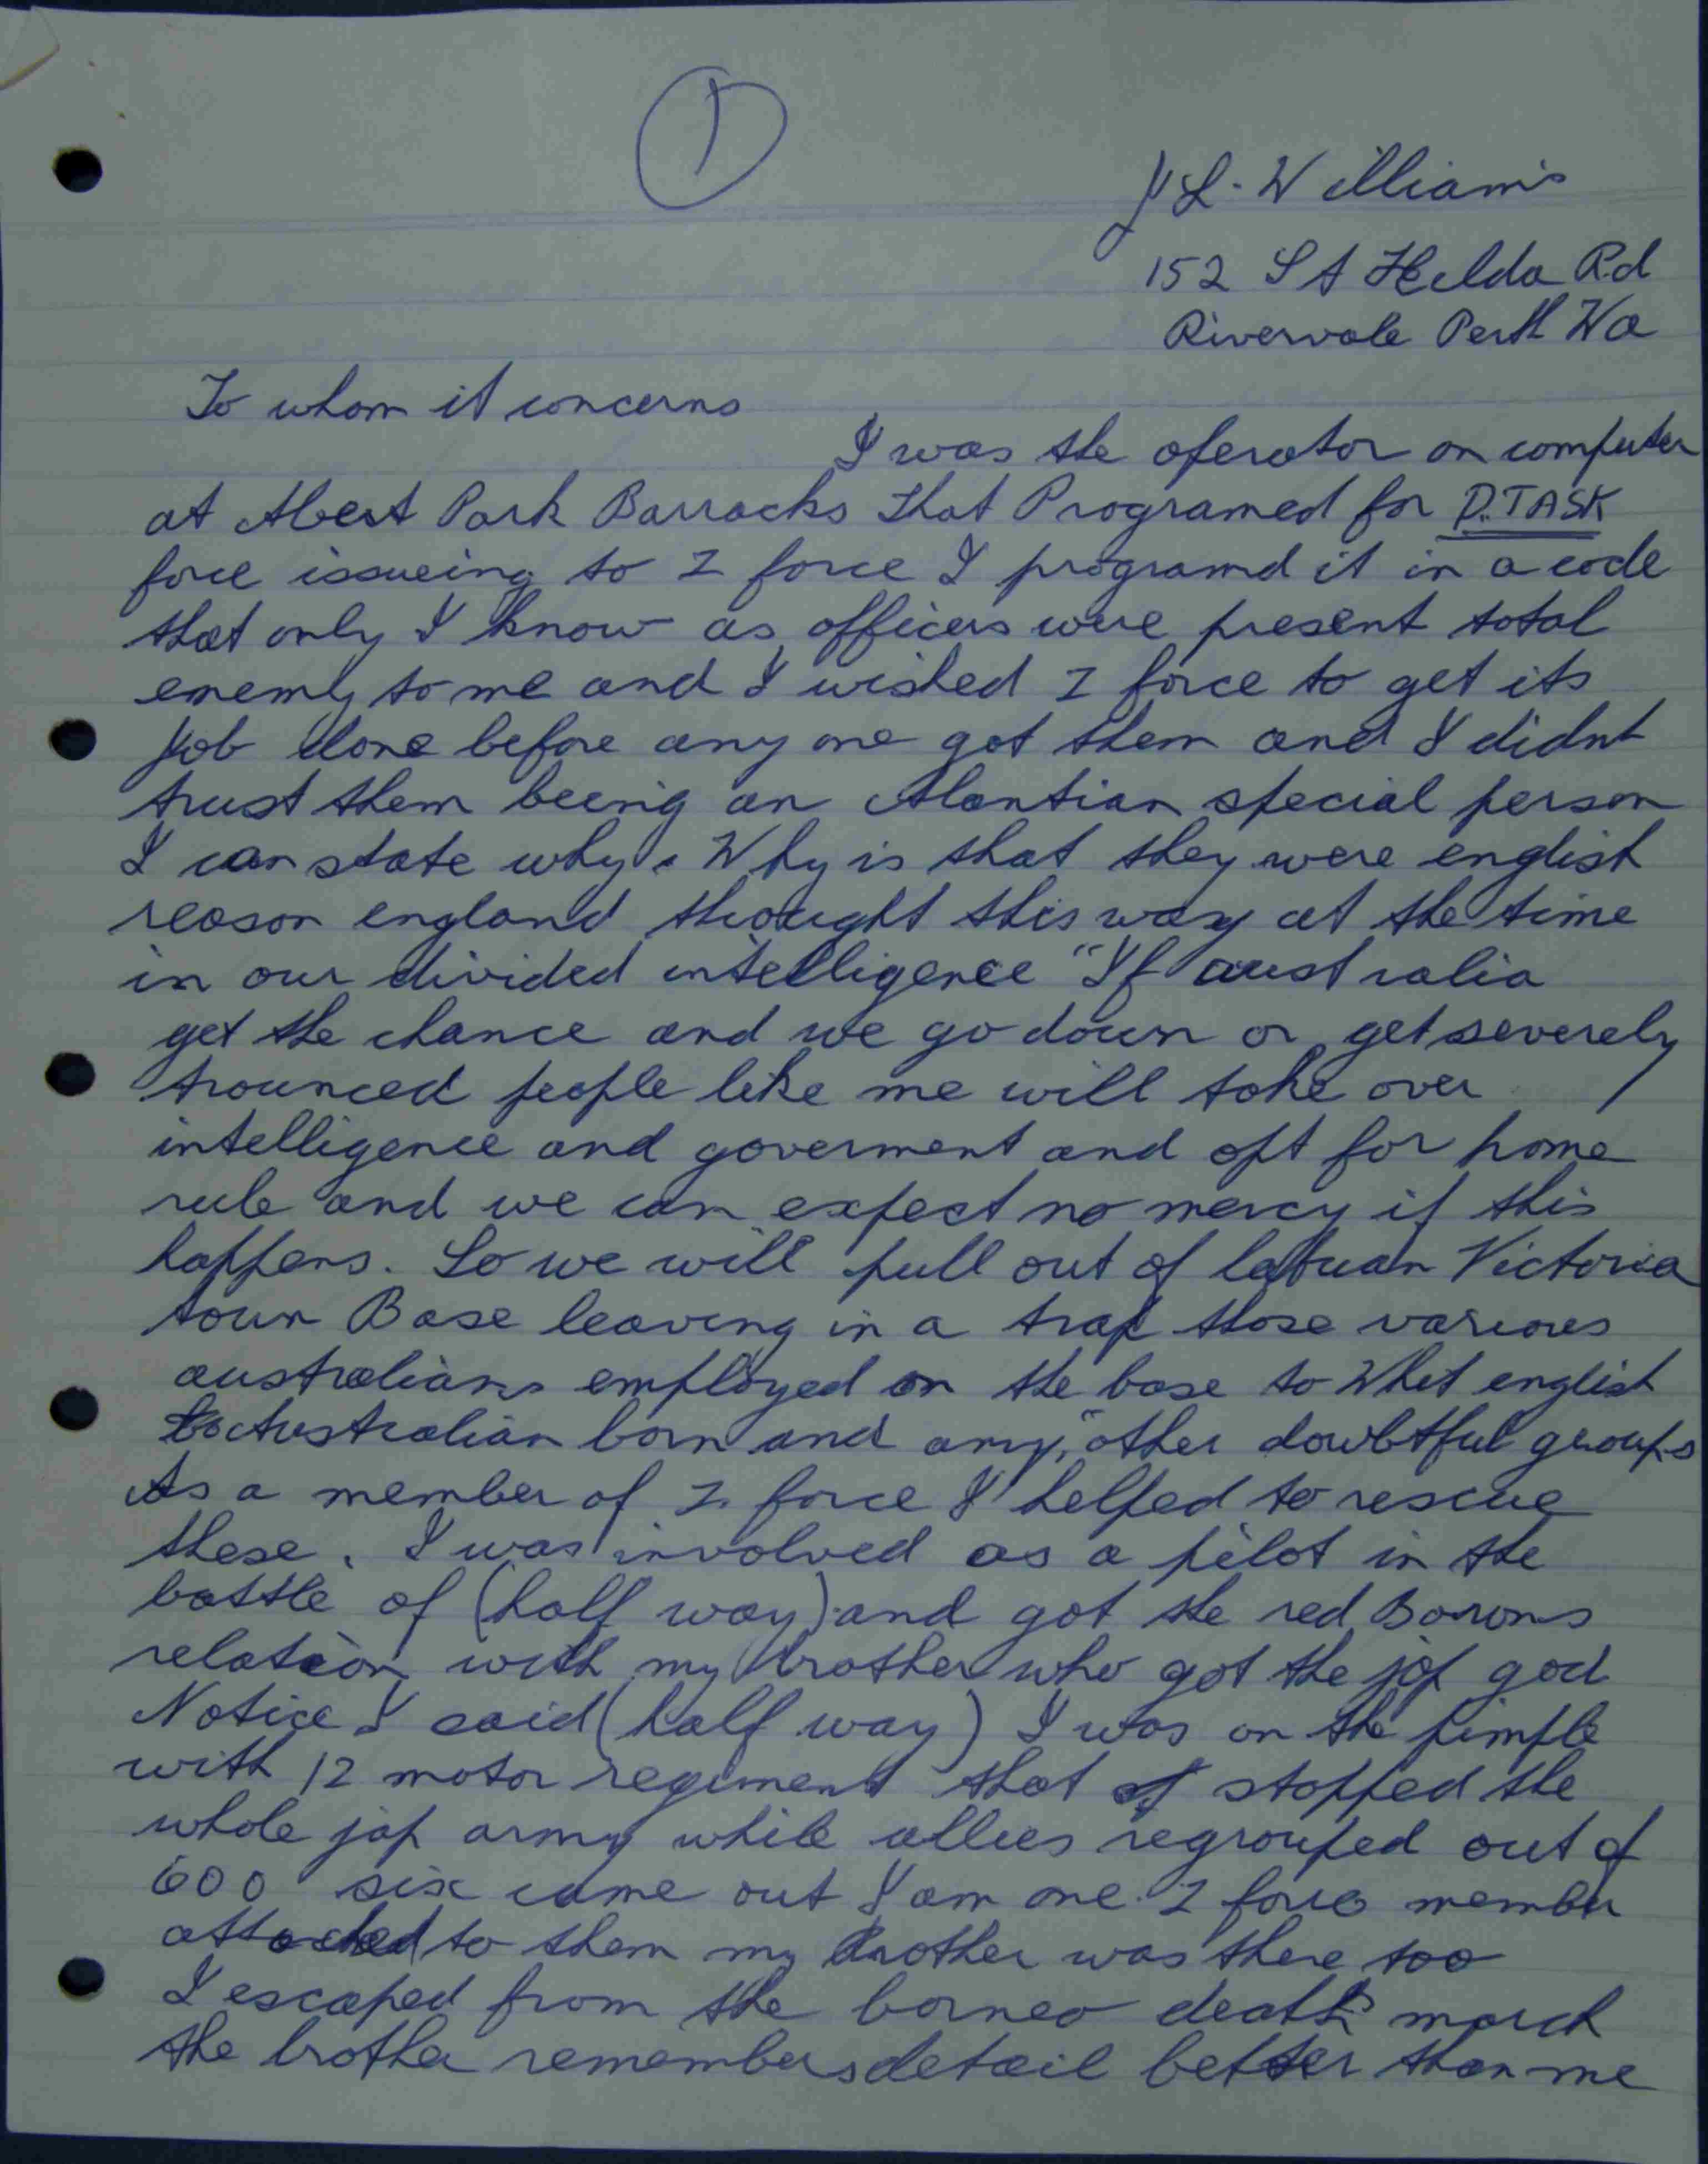 1
J L. Williams
152 St Hilda Rd
Rivervale Perth Wa
To whom it concerns
I was the operator on computer
at Abert Park Barracks that Programed for D.TASK
force issueing to Z force I programd it in a code
that only I know as officers were present total
enemy to me and I wished Z force to get its
job done before any one got them and I didnt
trust them being an Alantian special person
I can state why. Why is that they were english
reason england thought this way at the time
in our divided intelligence "If australia
get the chance and we go down or get severely
trounced people like me will take over
intelligence and goverment and opt for home
rule and we can expect no mercy if this
happens. So we will pull out of labuan Victoria
town Base leaving in a trap those various
australians employed on the base to Whit english
Australian born and any" other doubtful groups
As a member of Z force I helped to rescue
these. I was involved as a pilot in the
battle of (half way) and got the red Barons
relation with my brother who got the jap god
Notice I said (half way) I was on the pimple
with 12 motor regiment that stopped the
whole jap army while allies regrouped out of
600 six came out I am one. Z force member
attached to them my brother was there too
I escaped from the borneo death march
the brother remembers detail better than me